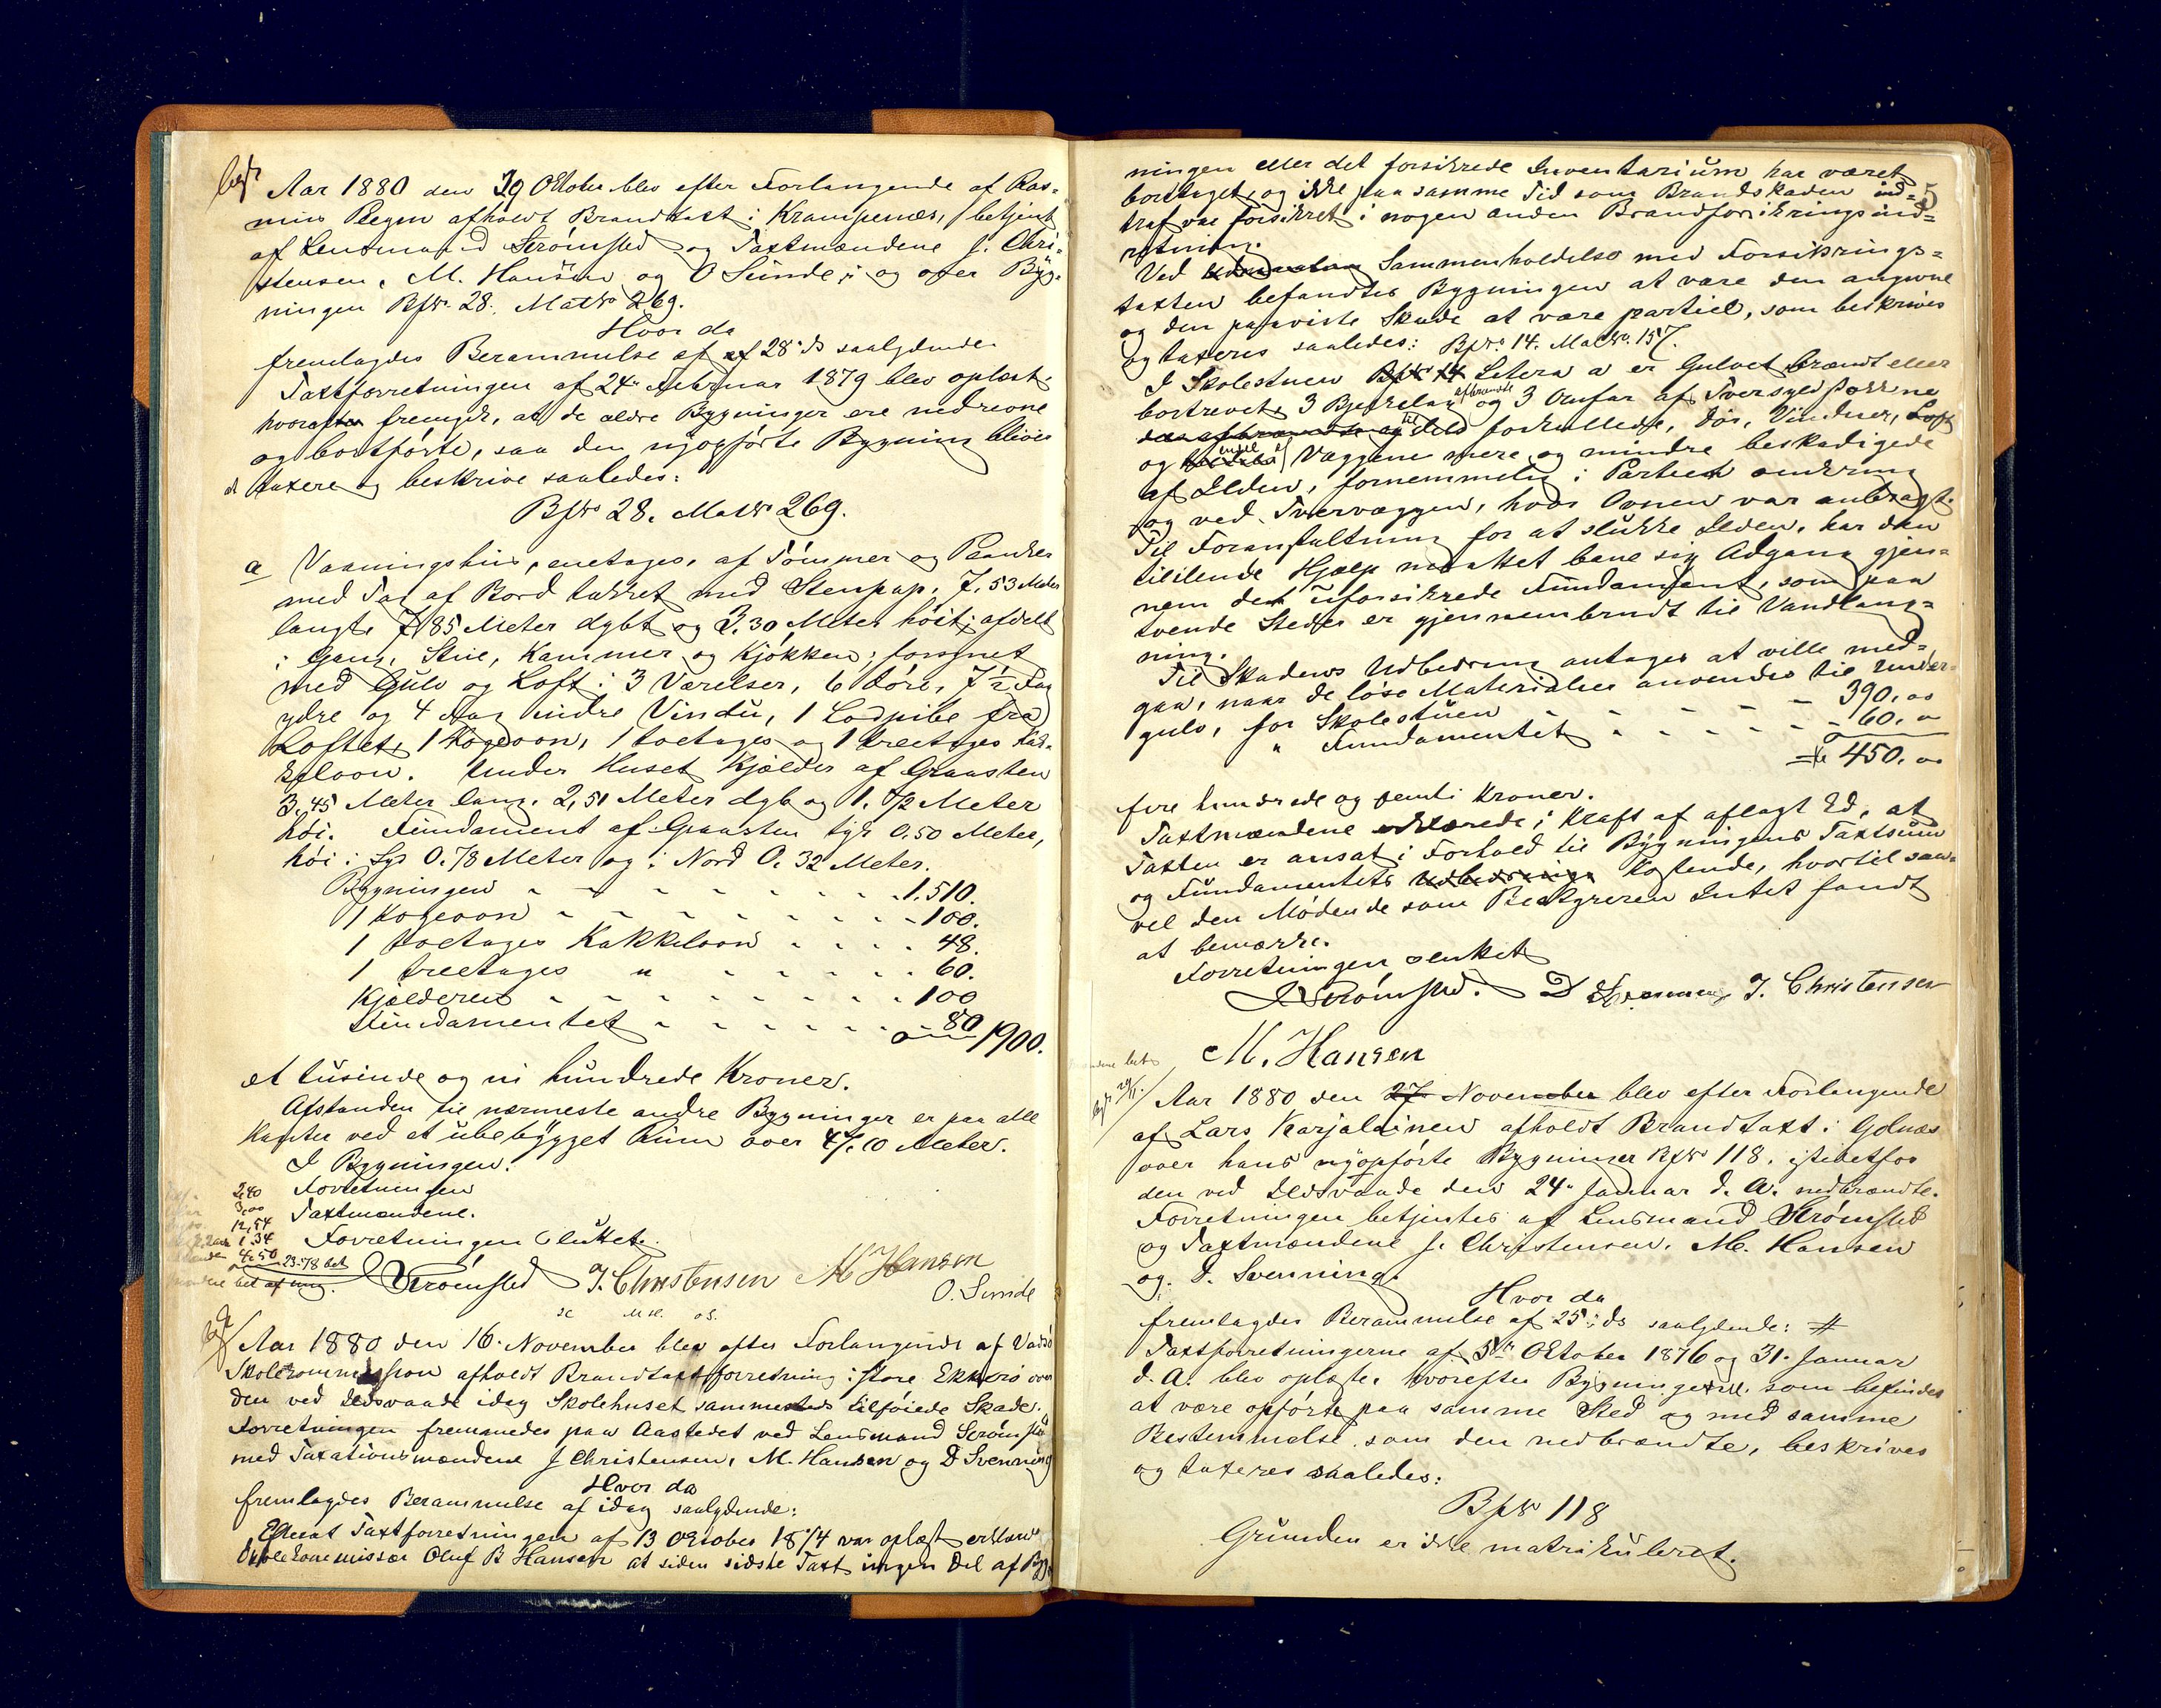 Aar 1880 den 29 Oktober blev efter Forlangende af Ras-
mus afholdt Brandtaxt i Krampenæs, betjent
af Lensmand Strömsted og Taxtmændene J. Chri-
stensen, M. Hansen og O Sunde; og over Byg-
ningen BpNo 28. MatNo 269.
Hvor da
fremlagdes Berammelse af 28 ds saalydende
Taxtforretningen af 24 Februar 1879 blev oplæst,
hvorefter fremgik, at de ældre Bygninger ere nedrevne
og bortförte, saa den nyopförte Bygning bliver
at taxere og beskrive saaledes:
BpNo 28. MatNo 269.
a Vaaningshus, enetages, af Tömmer og
med Tag af Bord tækket med Stenpap, 7.53 Meter
langt, 7.85 Meter dybt og 3.30 Meter höit; afdelt
i Gang, Stue, Kammer og Kjökken; forsynet
med Gulv og Loft i 3 Værelser, 6 Döre, 7½ Fag
ydre og 4 Fag indre Vindu, 1 Lodpibe fra
Loftet, 1 Kogeovn, 1 toetages og 1 treetages Kak-
kelovn. Under Huset Kjælder af Graasten
3.45 Meter lang, 2,51 Meter dyb og 1.72 Meter
höi. Fundament af Graasten tyk 0.50 Meter,
höi i Syd 0.78 Meter og i Nord 0.32 Meter.
Bygningen - - - - - - 1.510.
1 Kogeovn - - - - - - 100.
1 toetages Kakkelovn - - - - 48.
1 treetages " - - - - - 60.
Kjælderen - - - - - - 100
Fundamentet - - - - - - 80
1900.
et tusinde og ni hundrede Kroner.
Afstanden til nærmeste andre Bygninger er paa alle
Kanter ved et ubebygget Rum over 47.10 Meter.
I Bygningen.
2,40 Forretningen
3,00 Taxtmændene.
12,54
1.34 Forretningen sluttet.
4.50 23.78 bet
Strömsted J. Christensen M Hansen
O. Sunde
Aar 1880 den 16 November blev efter Forlangende af Vadsö
Skolekommission afholdt Brandtaxtforretning i store Ekkerö over
den ved Ildsvaade idag Skolehuset sammesteds tilföiede Skade.
Forretningen fremmedes paa Aastedet ved Lensmand Strömsted
med Taxationsmændene J Christensen, M. Hansen og D Svenning
Hvor da
fremlagdes Berammelse af idag saalydende:
Efterat Taxtforretningen af 13 Oktober 1874 var oplæst erklærede
Skolekommissær Oluf B Hansen at siden sidste Taxt ingen Del af Byg-
5
ningen eller det forsikrede Inventarium har været
borttaget, og ikke paa samme Tid som Brandskaden ind-
traf var forsikret i nogen anden Brandforsikringsind-
retning.
Ved Sammenholdelse med Forsikrings-
taxten befandtes Bygningen at være den angivne
og den paaviste Skade at være partiel, som beskrives
og taxeres saaledes: BpNo. 14. MatNo. 157.
I Skolestuen BpNo 14 Litera a er Gulvet brændt eller
bortrevet, 3 Bjelkelag afbrændte og 3 Omfar af Tversyldstokkene
til dels forkullede, Dör, Vinduer, Loft
og Væggene mere og mindre beskadigede
af Ilden, fornemmelig i Partiet omkring
og ved Tvervæggen, hvor Ovnen var anbragt.
Til Foranstaltning for at slukke Ilden, har den
tililende Hjælp maattet bane sig Adgang gjen-
nem det uforsikrede Fundament, som paa
tvende Steder er gjennembrudt til Vandlang-
ning.
Til Skadens Udbedring antages at ville med-
gaa, naar de löse Materialier anvendes til Under-
gulv, for Skolestuen - - - - - 390.00
" Fundamentet - - - - - 60.00
Kr 450.00
fire hundrede og femti Kroner.
Taxtmændene erklærede i Kraft af aflagt Ed, at
Taxten er ansat i Forhold til Bygningens Taxtsum
og Fundamentets Udbedrings Kostende, hvortil saa-
vel den Mödende som Bestyreren Intet fandt
at bemærke.
Forretningen sluttet
Strömsted. D Svenning J. Christensen
M. Hansen
Aar 1880 den 27 November blev efter Forlangende
af Lars Karjalainen afholdt Brandtaxt i Golnæs
over hans nyopförte Bygninger BpNo 118. istedetfor
den ved Ildsvaade den 24 Januar d. A. nedbrændte.
Forretningen betjentes af Lensmand Strömsted
og Taxtmændene J. Christensen, M. Hansen
og D. Svenning.
Hvor da
fremlagdes Berammelse af 25 ds saalydende: #
Taxtforretningerne af 5te Oktober 1876 og 31. Januar
d. A. blev oplæste, hvorefter Bygningerne som befindes
at være opförte paa samme Sted og med samme
Bestemmelse som den nedbrændte, beskrives
og taxeres saaledes:
BpNo 118
Grunden er ikke matrikuleret.